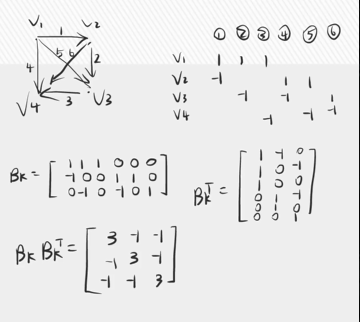 V₁ 1 V₂
4 5 6 2
V4 3 V3
① ② ③ ④ ⑤ ⑥
V₁ 1 1 1
V₂ -1 1 1
V3 -1 -1 1
V4 -1 -1 -1
BK = [ 1 1 1 0 0 0
-1 0 0 1 1 0
0 -1 0 -1 0 1 ]
BKᵀ = [ 1 -1 0
1 0 -1
1 0 0
0 1 -1
0 1 0
0 0 1 ]
BK BKᵀ = [ 3 -1 -1
-1 3 -1
-1 -1 3 ]